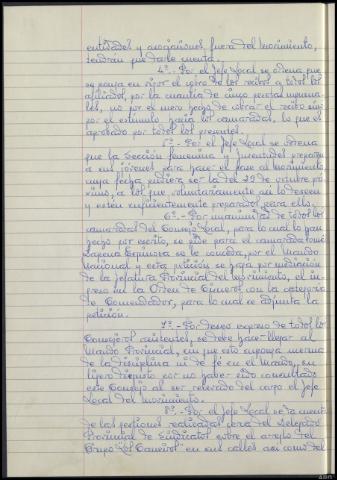 entidades y asociaciones fuera del Movimiento,
tendran que darle cuenta.
4º.- Por el Jefe Local se ordena que
se ponga en vigor el cobro de los recibos a todos los
afiliados, por la cuantia de cinco pesetas mensua-
les, no por el mero hecho de cobrar el recibo sino
por el estimulo hacia los camaradas, lo que es
aprobado por todos los presentes.
5º.- Por el Jefe Local se ordena
que la Sección femenina y Juventudes preparen
a sus jóvenes para hacer el pase al Movimiento
cuya fecha pudiera ser la del 29 de octubre pró
ximo, a los que voluntariamente asi lo deseen
y esten suficientemente preparados para ello.
6º.- Por unanimidad de todos los
camaradas del Consejo Local, para lo cual lo han
hecho por escrito, se pide para el camarada Tomás
Espinosa se le conceda, por el Mando
Nacional y esta petición se haga por mediación
de la Jefatura Provincial del Movimiento, el in-
greso en la Orden de Cisneros con la categoria
de Comendador, para lo cual se adjunta la
petición.
7º.- Por deseo expreso de todos los
Consejeros asistentes, se debe hacer llegar al
Mando Provincial, sin que esto suponga merma
de la disciplina ni de fé en el Mando, su
disgusto por no haber sido consultado
este Consejo al ser relevado del cargo el Jefe
Local del Movimiento.
8º.- Por el Jefe Local se da cuenta
de las gestiones realizadas cerca del Delegado
Provincial de Sindicatos sobre el arreglo del
Grupo "Los Cameros" en sus calles asi como del